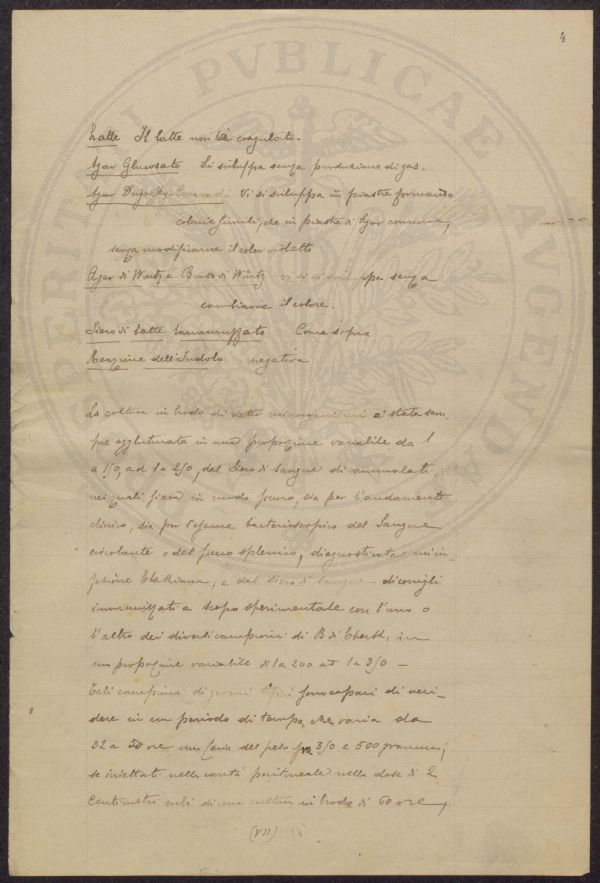 4
Latte Il latte non è coagulato.
Agar Glucosato Si sviluppa senza produzione di gas.
Agar Drigalsky-Conradi Vi si sviluppa in piastre formando
colonie simili, che in piastre di Agar comune,
senza modificarne il color violetto
Agar di Wurtz e Brodo di Wurtz vi si sviluppa senza
cambiarne il colore.
Siero di latte tornasolato Come sopra
Reazione dell'Indolo negativa
La coltura in brodo di detti è stata sem
pre agglutinata in una proporzione variabile da 1
a 150, ad 1 a 250, dal Siero di Sangue di ammalati,
nei quali in modo sicuro, sia per l'andamento
clinico, sia per l'esame batterioscopico del Sangue
circolante o del succo splenico, diagnosticata un'in-
fezione Eberthiana, e dal siero di sangue di conigli
immunizzati a scopo sperimentale con l'uno o
l'altro dei diversi campioni di B di Eberth, in
una proporzione variabile di 1a 200 ad 1a 350 -
Tali campioni di germi tifici sono capaci di ucci-
dere in un periodo di tempo, che varia da
32 a ore una Cavia del peso fra 350 e 500 grammi,
se iniettati nella cavità peritoneale nella dose di 2
Centimetri cubi di una cultura in brodo di 60 ore,
(VII)
PROSPERITATI PVBLICAE AVGENDAE